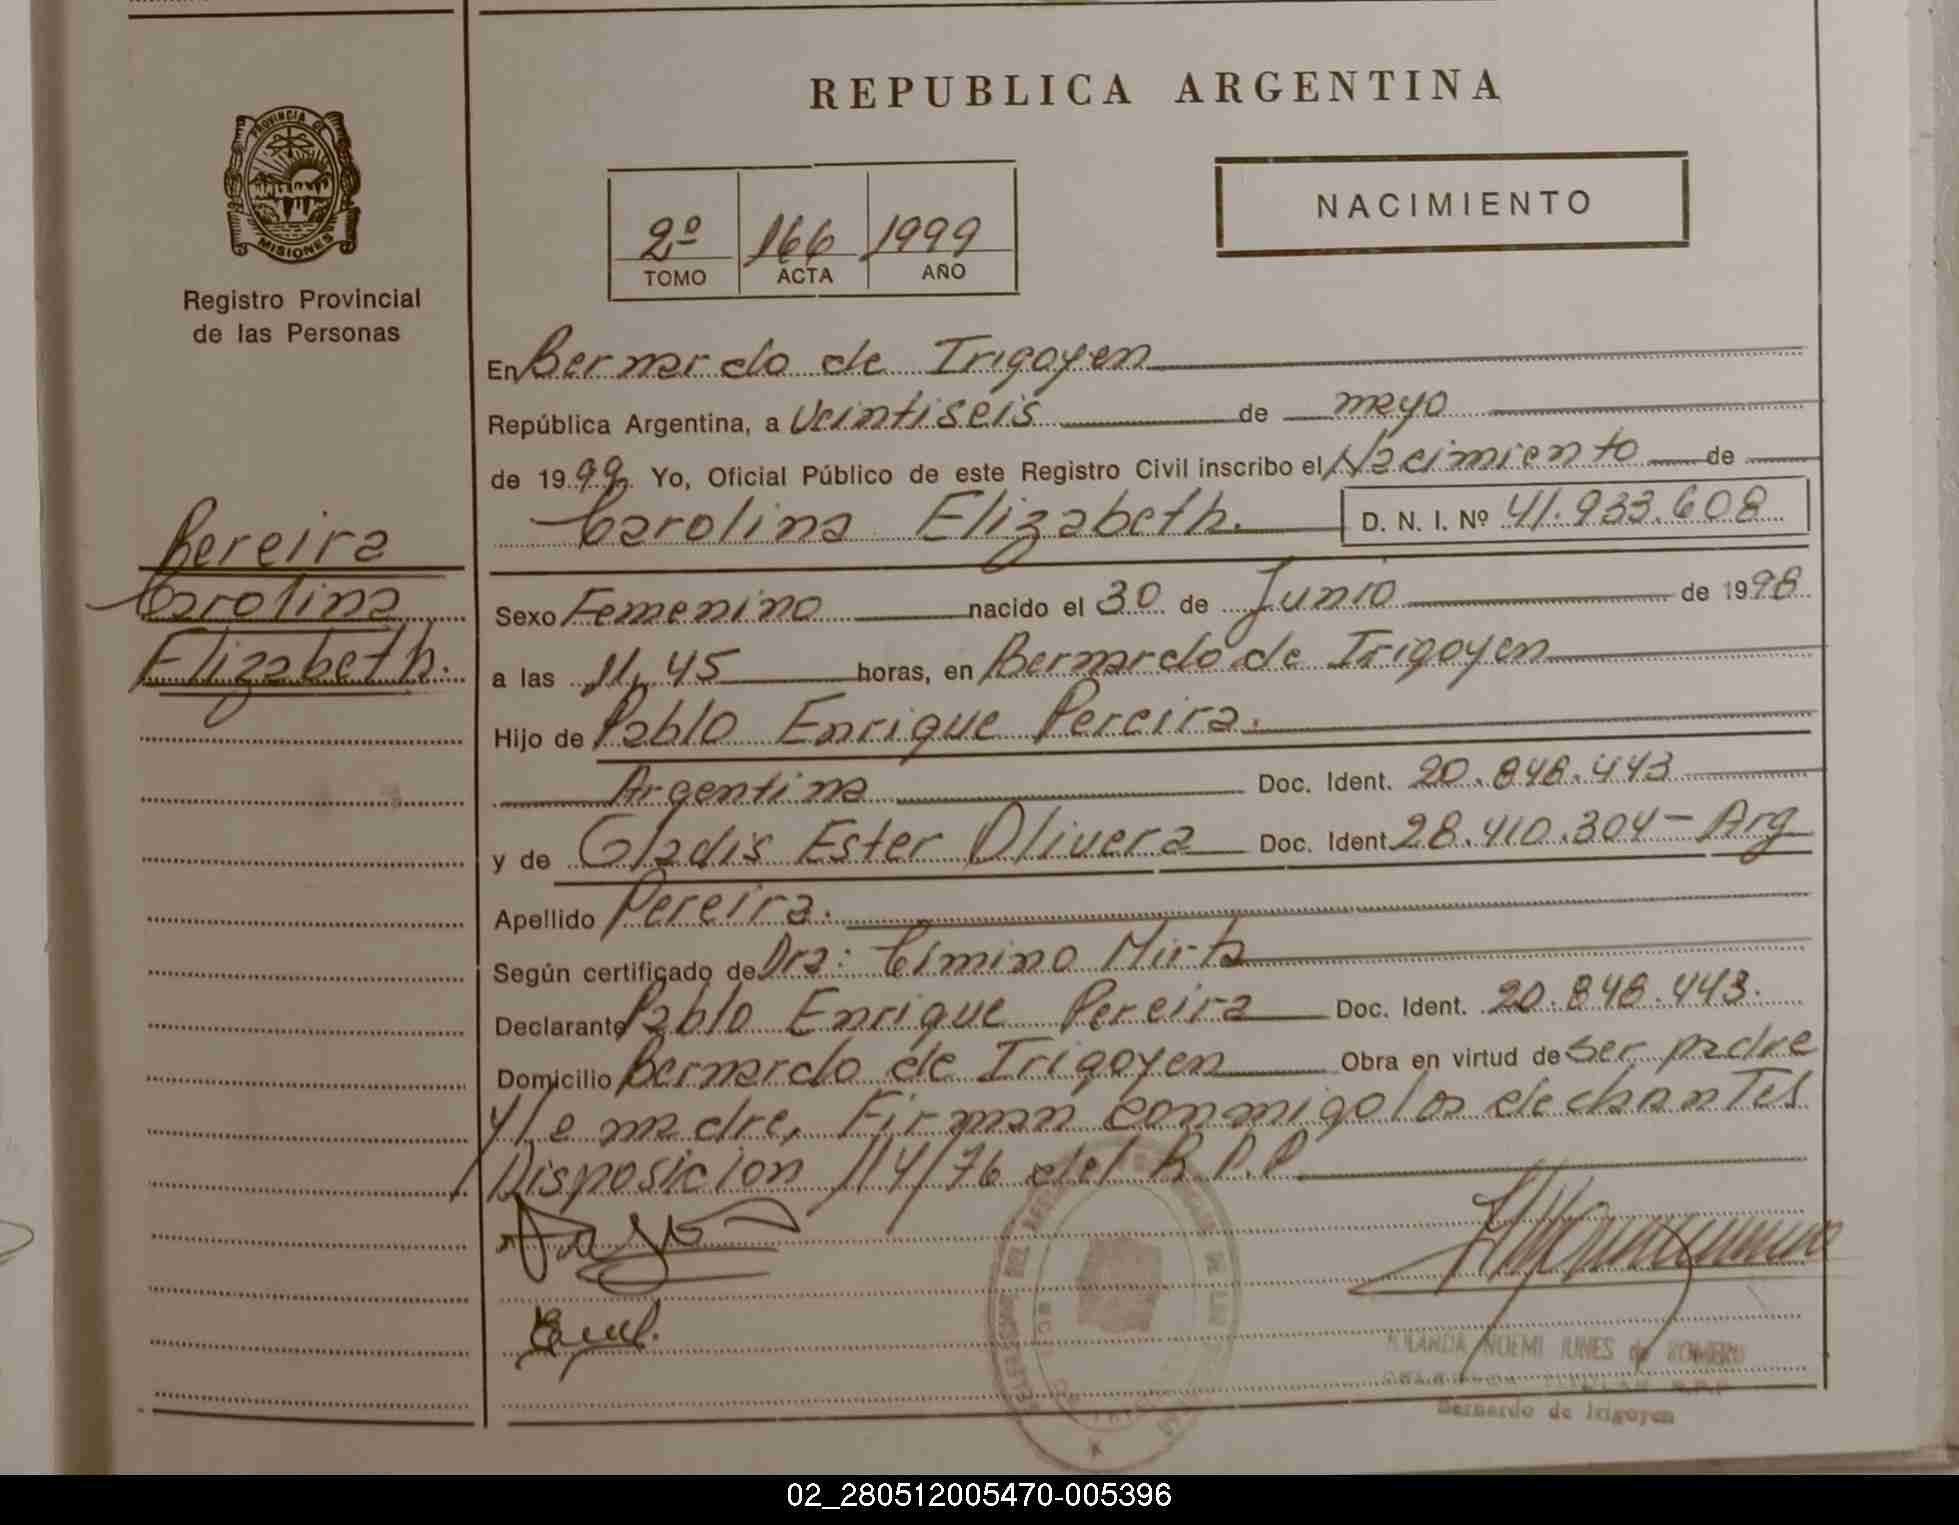 REPUBLICA ARGENTINA
PROVINCIA DE
MISIONES
Registro Provincial
de las Personas
NACIMIENTO
2º 166 1999
TOMO ACTA AÑO
En Bernardo de Irigoyen
República Argentina, a Veintiseis de mayo
de 1999. Yo, Oficial Público de este Registro Civil inscribo el Nacimiento de
Carolina Elizabeth. D. N. I. Nº 41.933.608
Pereira
Carolina
Elizabeth.
Sexo Femenino nacido el 30 de Junio de 1998
a las 11,45 horas, en Bernardo de Irigoyen
Hijo de Pablo Enrique Pereira.
Argentina Doc. Ident. 20.848.443
y de Gladis Ester Olivera Doc. Ident. 28.410.304 - Arg
Apellido Pereira.
Según certificado de Dra: Cimino Mirta
Declarante Pablo Enrique Pereira Doc. Ident. 20.848.443.
Domicilio Bernardo de Irigoyen Obra en virtud de ser padre
y la madre, Firman conmigo los
Disposicion 114/76 del R.P.P.
NOEMI de ROMERO
Bernardo de Irigoyen
02_280512005470-005396